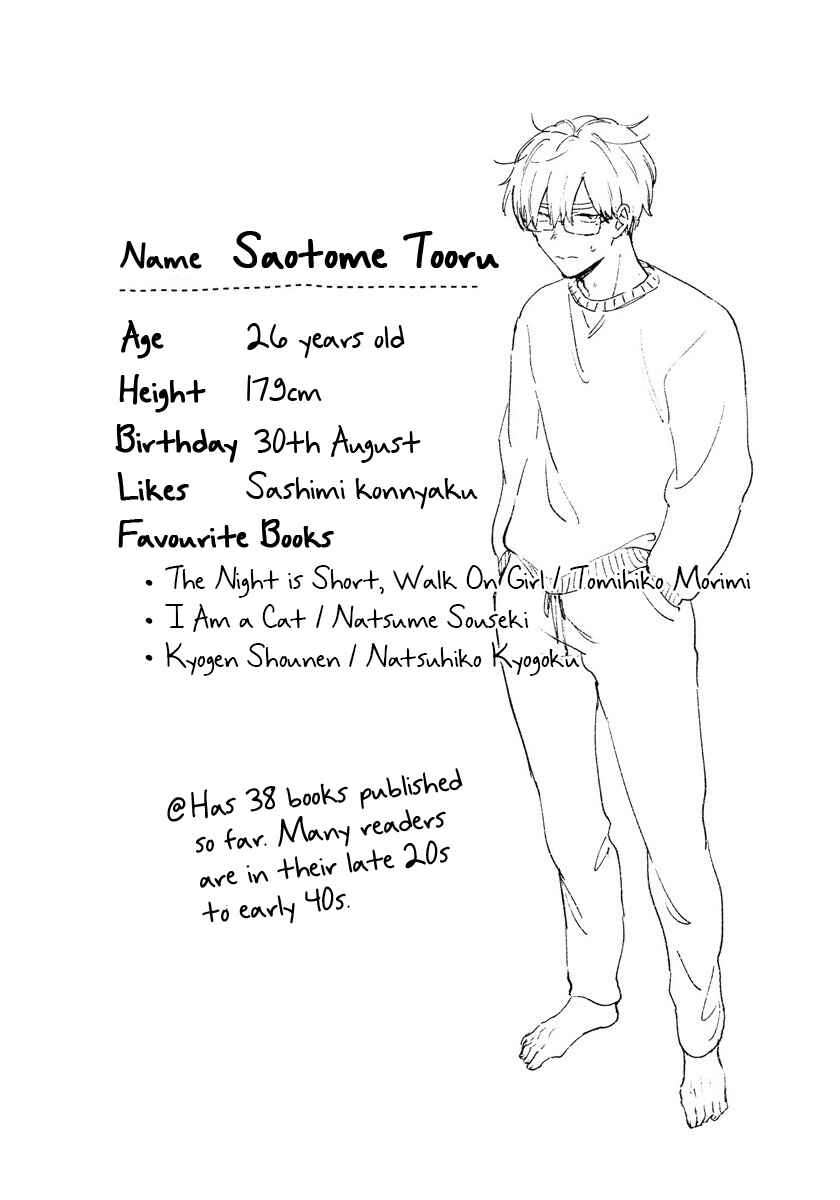 Name Saotome Tooru
Age 26 years old
Height 179cm
Birthday 30th August
Likes Sashimi konnyaku
Favourite Books
• The Night is Short, Walk On Girl / Tomihiko Morimi
• I Am a Cat / Natsume Souseki
• Kyogen Shounen / Natsuhiko Kyogoku
@Has 38 books published
so far. Many readers
are in their late 20s
to early 40s.